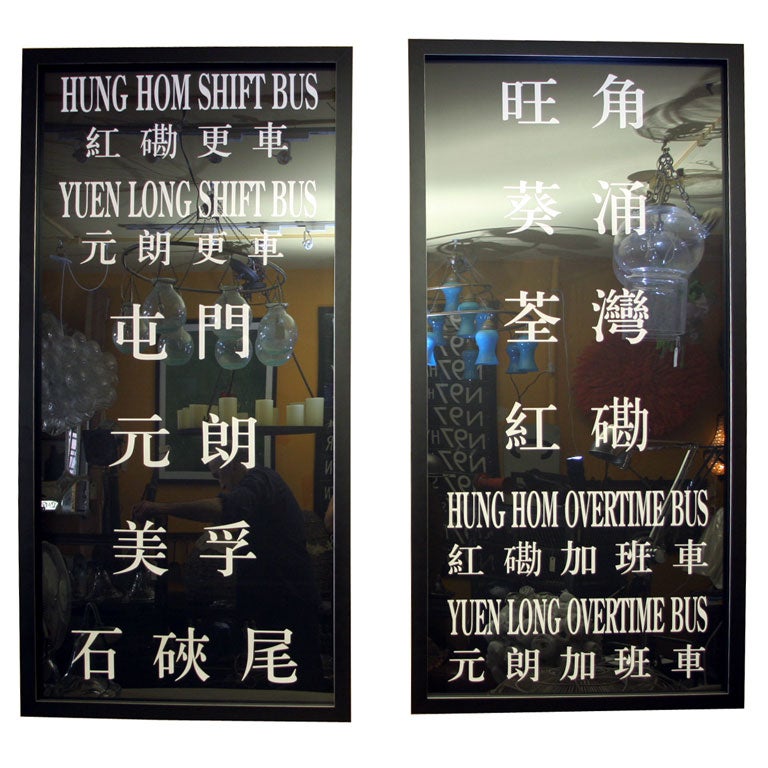 HUNG HOM SHIFT BUS
紅磡更車
YUEN LONG SHIFT BUS
元朗更車
屯門
元朗
美孚
石硤尾
旺角
葵涌
荃灣
紅磡
HUNG HOM OVERTIME BUS
紅磡加班車
YUEN LONG OVERTIME BUS
元朗加班車